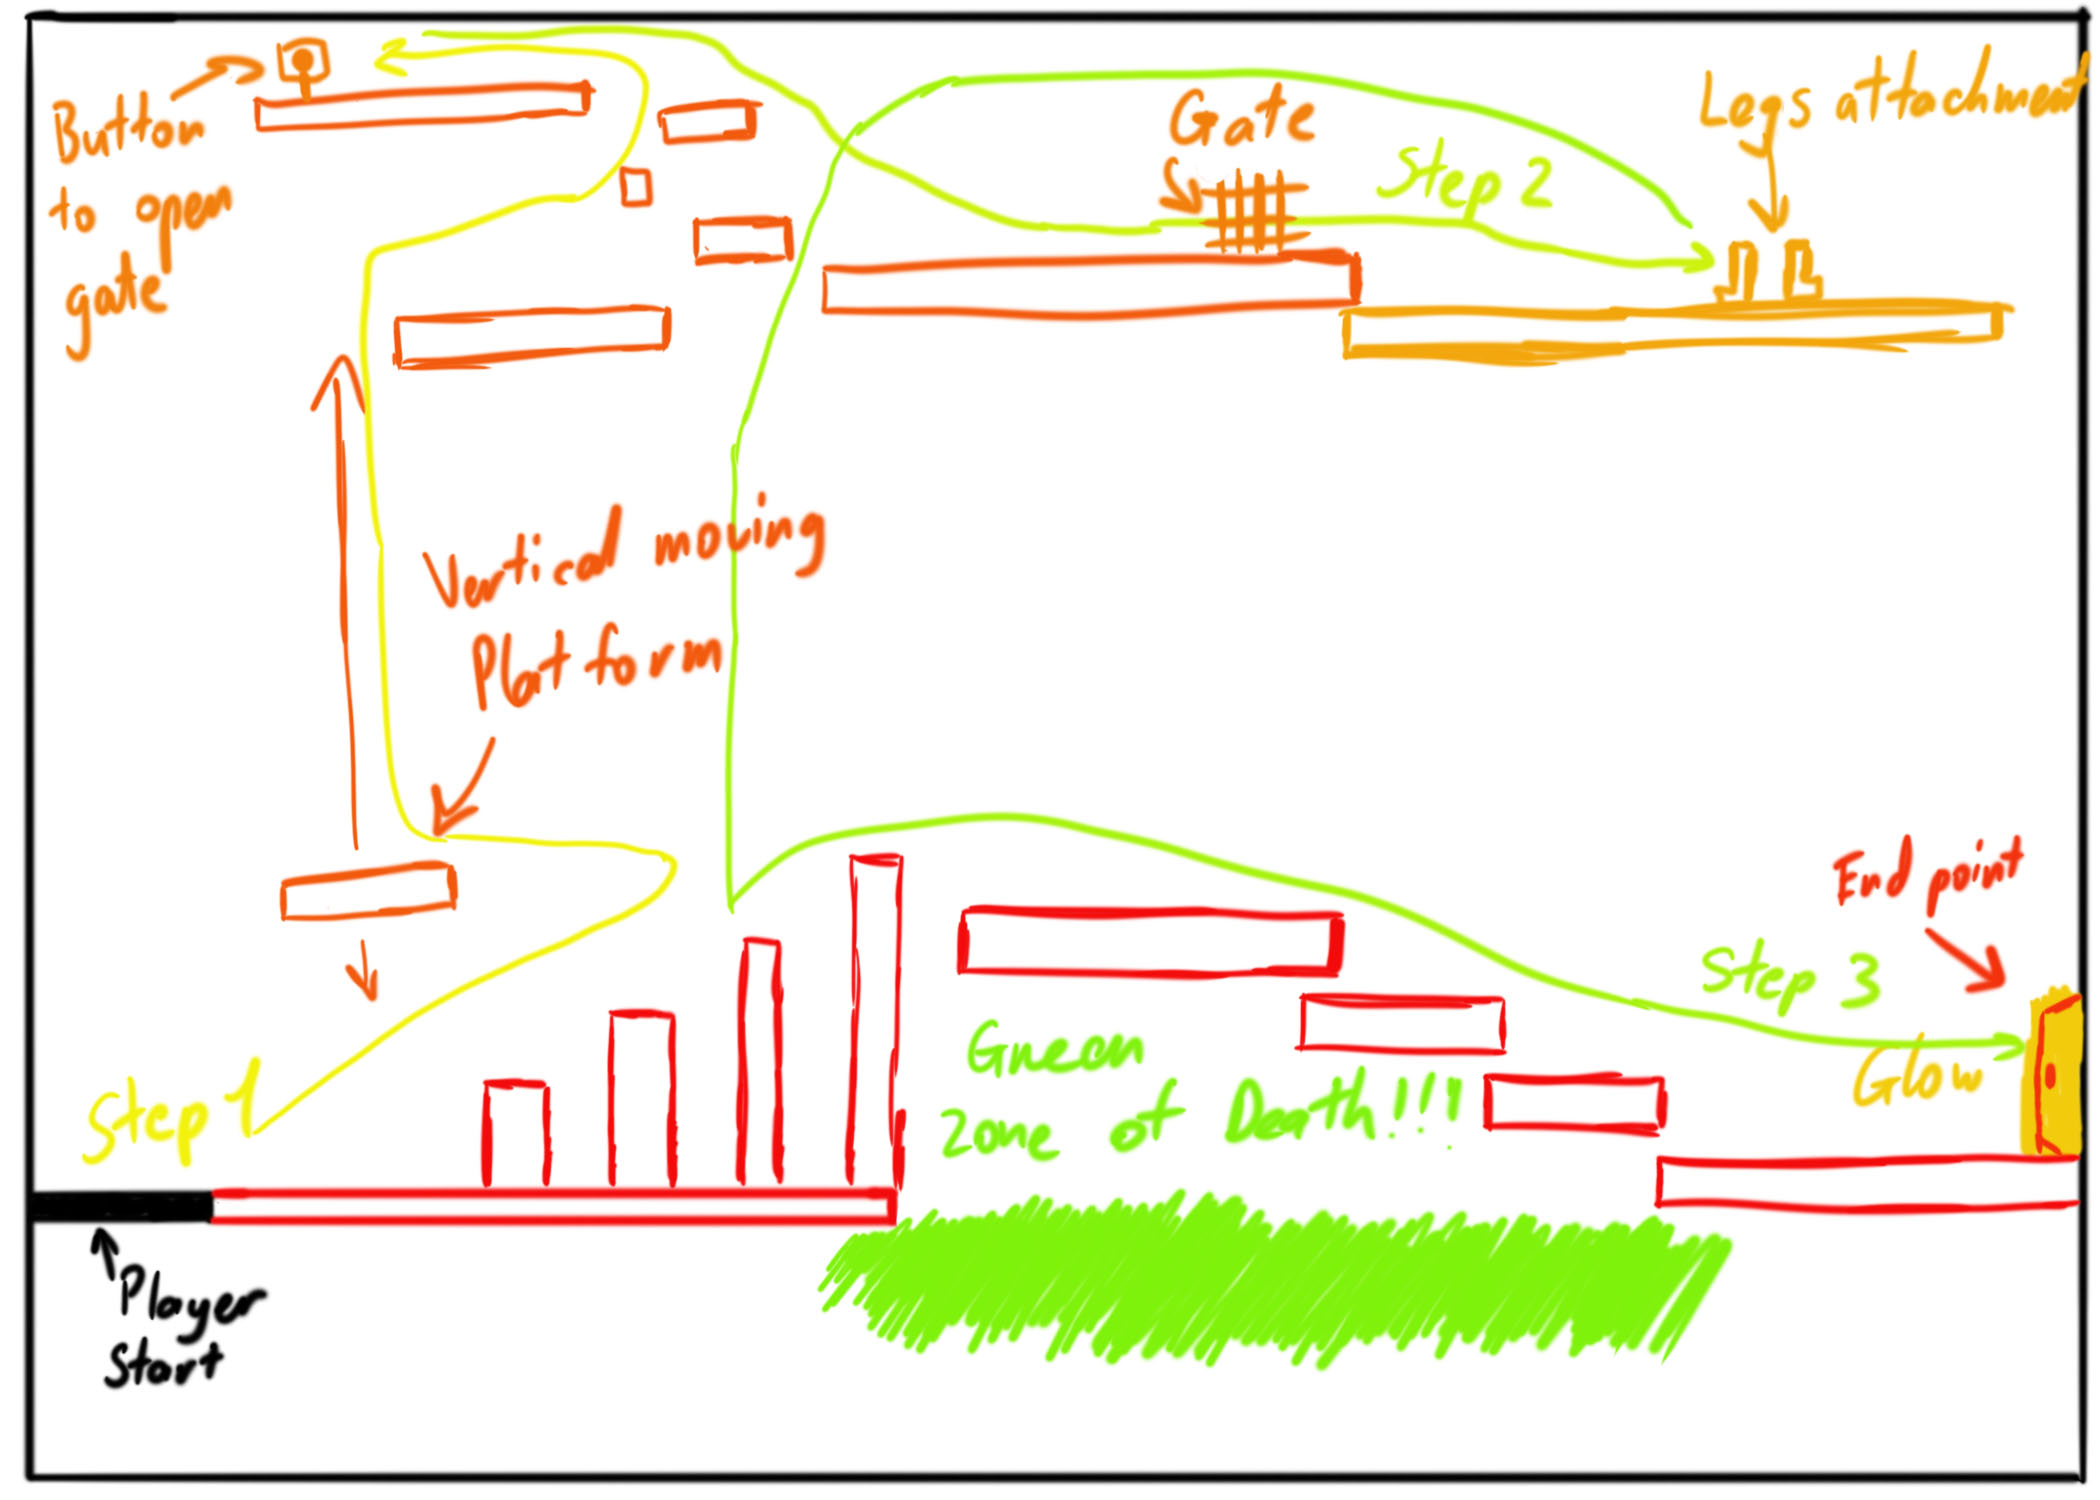 Button
to open
gate
Gate
Step 2
Legs attachment
Vertical moving
Platform
End point
Step 3
Glow
Green
Zone of Death!!!
Step 1
Player
Start